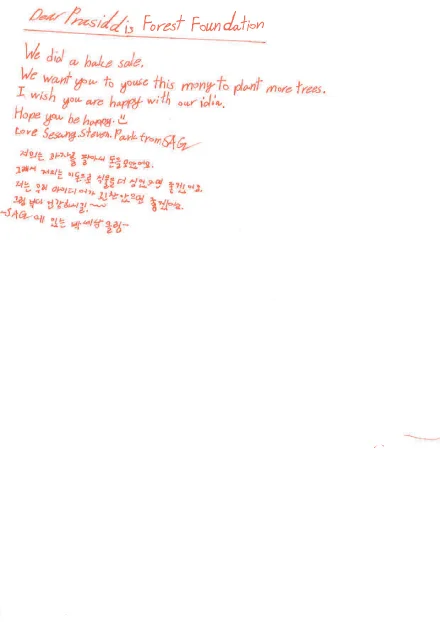 Dear Presidd is Forest Foundation
We did a bake sale.
We want you to youse this mony to plant more trees.
I wish you are happy with our idin.
Hope you be happy.
Love Sesang.Steven.Park from SAG
저희는 과자를 팔아서 돈을 모았어요.
그래서 저희는 이돈으로 식물을 더 심었으면 좋겠어요.
저는 우리 아이디어가 좋겠어요.
그럼 부디 건강하시길. ~~
~SAG 에 있는 박세상 올림~